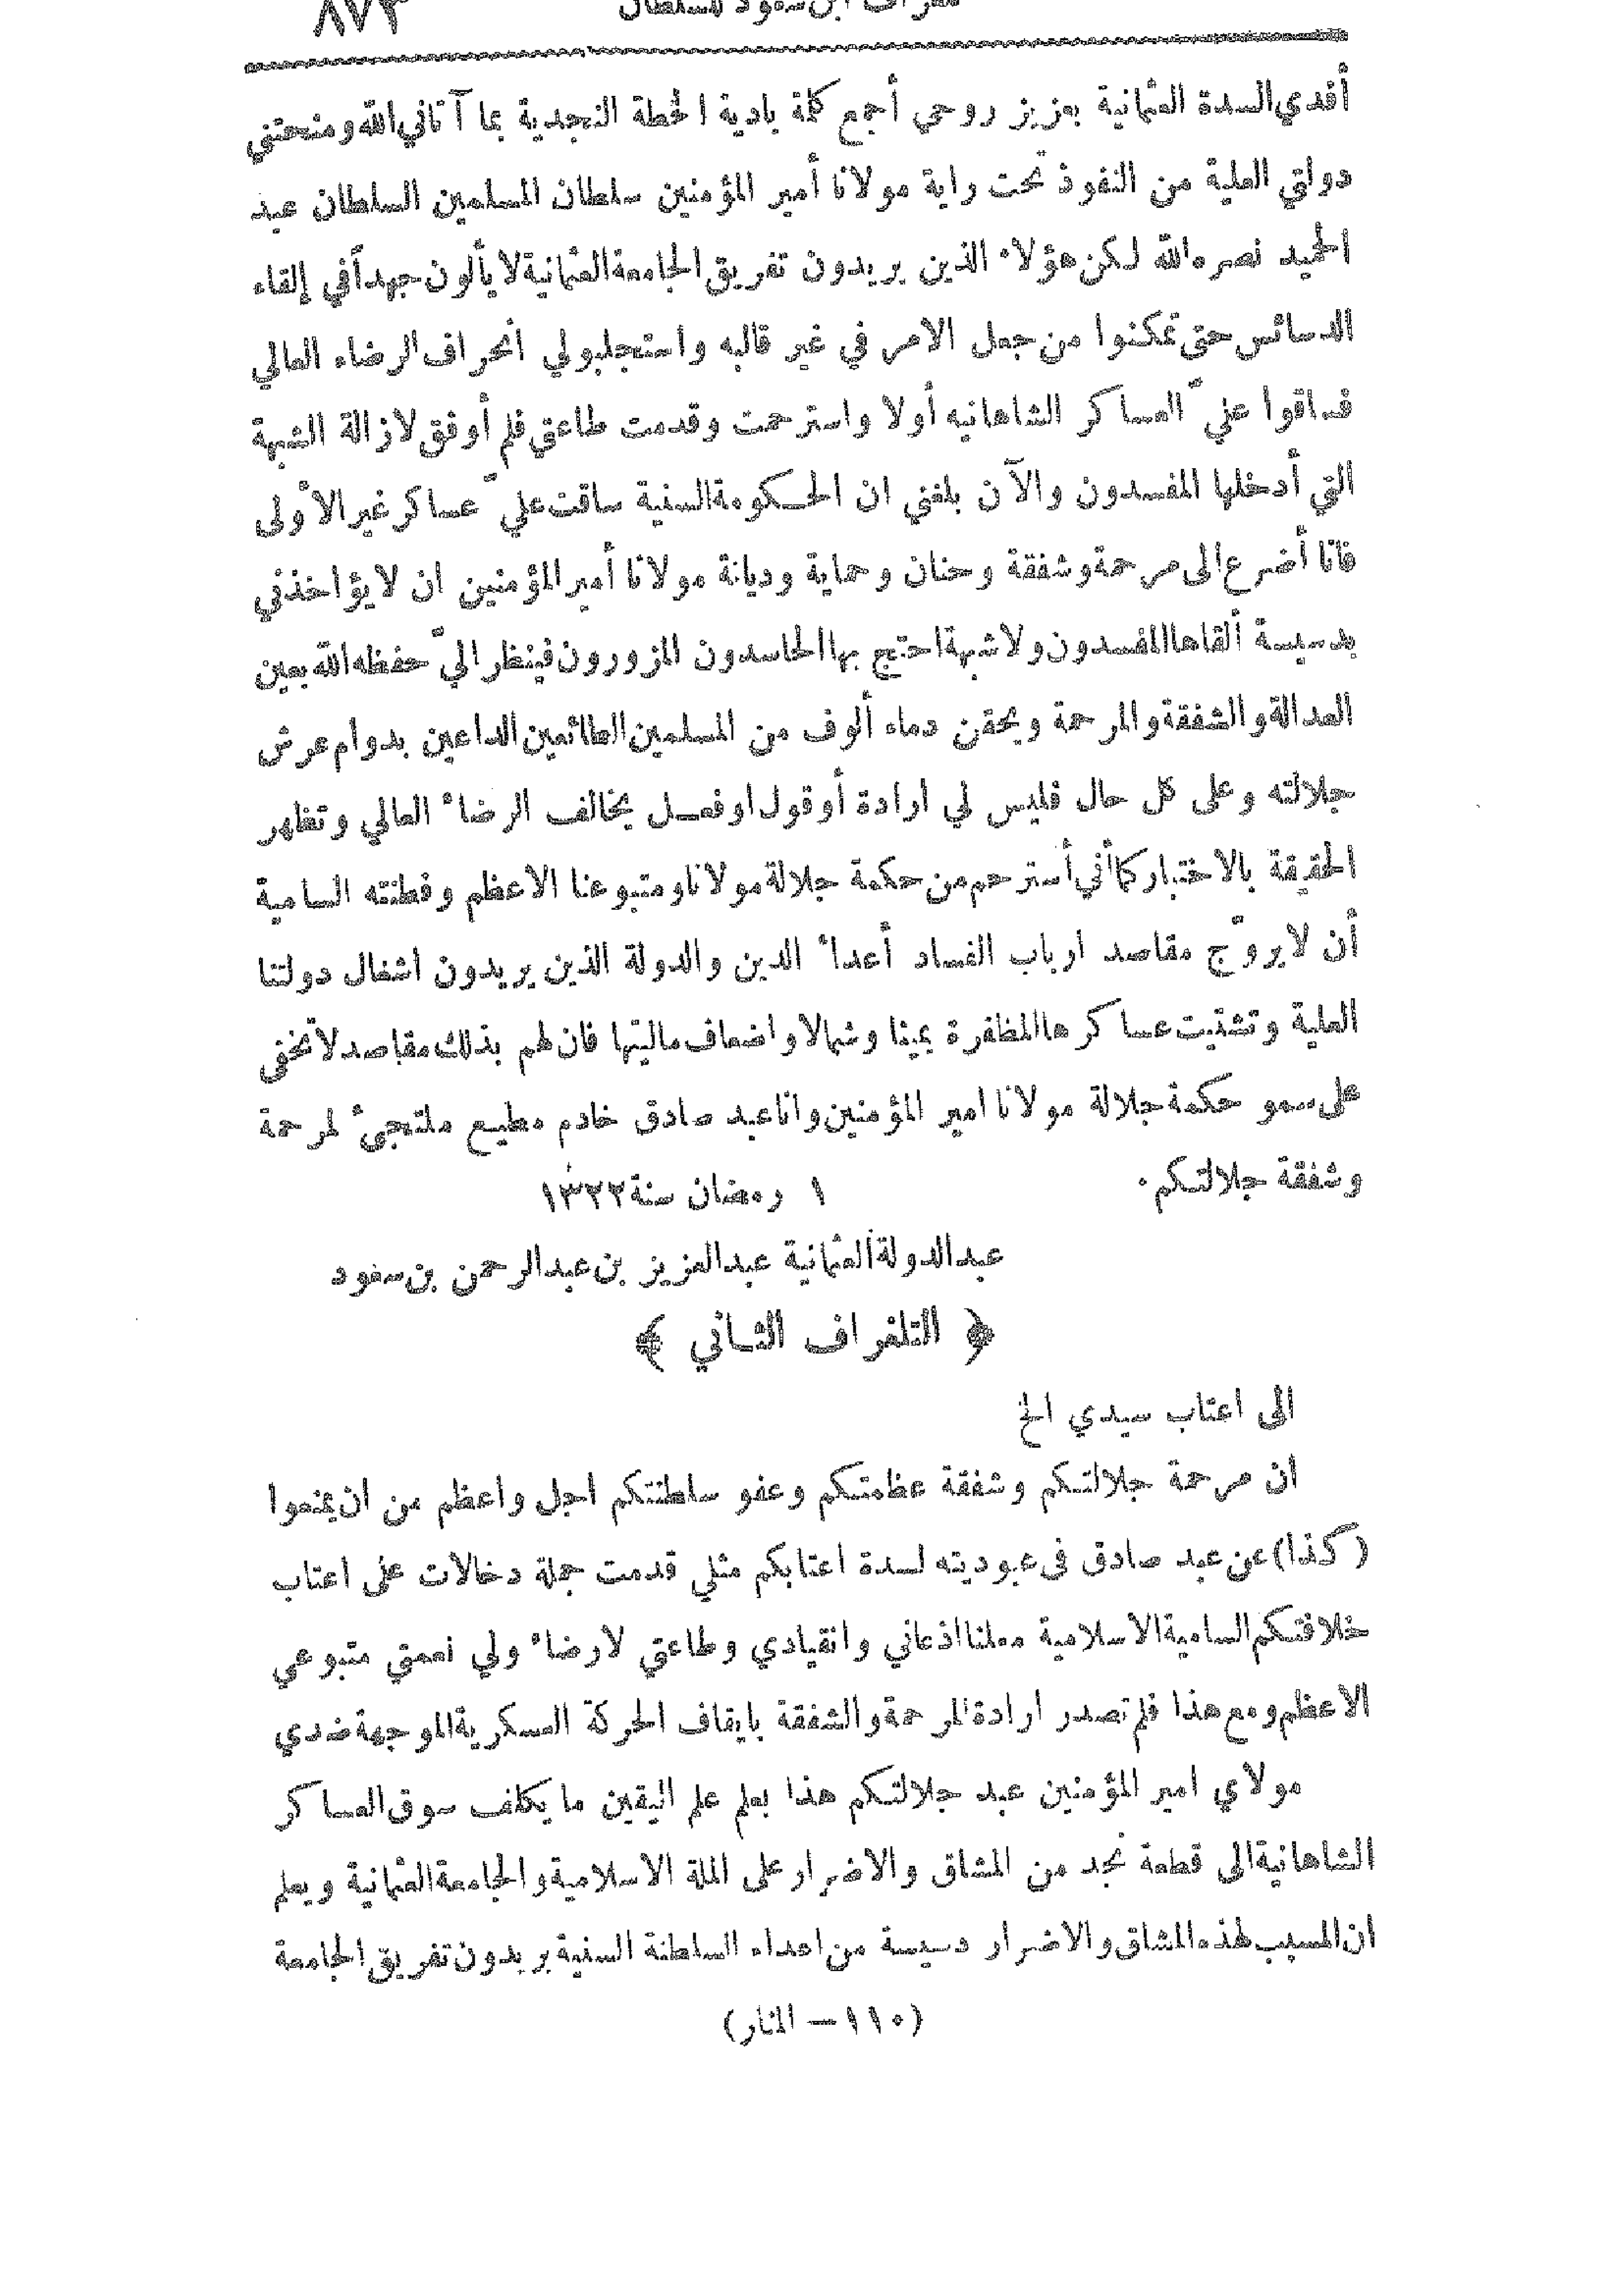 تلغراف ابن سعود للسلطان ٨٧٣
أفدي السدة العثمانية بعزيز روحي أجمع كلمة بادية الخطة النجدية بما آتاني الله ومنحتني
دولتي العلية من النفوذ تحت راية مولانا أمير المؤمنين سلطان المسلمين السلطان عبد
الحميد نصره الله لكن هؤلاء الذين يريدون تفريق الجامعة العثمانية لا يألون جهداً في إلقاء
الدسائس حتى تمكنوا من جعل الامر في غير قالبه واستجلبو لي انحراف الرضاء العالي
فساقوا عليّ العساكر الشاهانيه أولا واسترحمت وقدمت طاعتي فلم أوفق لازالة الشبهة
التي أدخلها المفسدون والآن بلغني ان الحكومة السنية ساقت عليّ عساكر غير الأولى
فانا أضرع الى مرحمة وشفقة وحنان وحماية وديانة مولانا أمير المؤمنين ان لا يؤاخذني
بدسيسة ألقاها المفسدون ولا شبهة احتج بها الحاسدون المزورون فينظر اليّ حفظه الله بعين
العدالة والشفقة والمرحمة ويحقن دماء ألوف من المسلمين الطائعين الداعين بدوام عرش
جلالته وعلى كل حال فليس لي ارادة أو قول او فعل يخالف الرضاء العالي وتظهر
الحقيقة بالاختبار كما أني أسترحم من حكمة جلالة مولانا ومتبوعنا الاعظم وفطنته السامية
أن لا يروّج مقاصد ارباب الفساد أعداء الدين والدولة الذين يريدون اشغال دولتنا
العلية وتشتيت عساكرها المظفرة يمينا وشمالا واضعاف ماليتها فان لهم بذلك مقاصد لا تخفى
على سمو حكمة جلالة مولانا امير المؤمنين وانا عبد صادق خادم مطيع ملتجئ لمرحمة
وشفقة جلالتكم . ١ رمضان سنة ١٣٢٢
عبد الدولة العثمانية عبد العزيز بن عبد الرحمن بن سعود
﴿ التلغراف الثاني ﴾
الى اعتاب سيدي الخ
ان مرحمة جلالتكم وشفقة عظمتكم وعفو سلطنتكم اجل واعظم من ان يمنعوا
(كذا) عن عبد صادق فى عبوديته لسدة اعتابكم مثلي قدمت جملة دخالات على اعتاب
خلافتكم السامية الاسلامية معلنا اذعاني وانقيادي وطاعتي لارضاء ولي نعمتي متبوعي
الاعظم ومع هذا فلم تصدر ارادة المرحمة والشفقة بايقاف الحركة العسكرية الموجهة ضدي
مولاي امير المؤمنين عبد جلالتكم هذا يعلم علم اليقين ما يكلف سوق العساكر
الشاهانية الى قطعة نجد من المشاق والاضرار على الملة الاسلامية والجامعة العثمانية ويعلم
ان المسبب لهذه المشاق والاضرار دسيسة من اعداء السلطنة السنية يريدون تفريق الجامعة
(١١٠ – المنار)